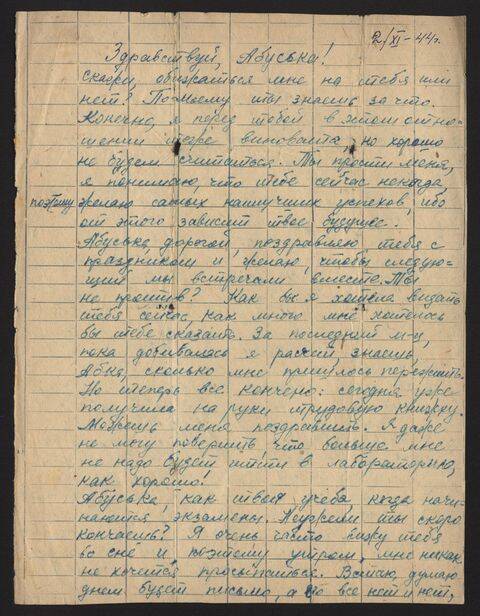 2/XI-44г.
Здравствуй, Абуська!
скажи, обижаться мне на тебя или
нет? По-моему ты знаешь за что.
Конечно, я перед тобой в этом отно-
шении тоже виновата, но хорошо
не будем считаться. Ты прости меня,
я понимаю, что тебе сейчас некогда,
поэтому желаю самых наилучших успехов, ибо
от этого зависит твое будущее.
Абуська, дорогой, поздравляю тебя с
праздником и желаю, чтобы следую-
щий мы встречали вместе. Ты
не против? Как бы я хотела видать
тебя сейчас, как много мне хотелось
бы тебе сказать. За последний м-ц,
пока добивалась я расчет, знаешь,
Абка, сколько мне пришлось пережить.
Но теперь все кончено: сегодня уже
получила на руки трудовую книжку.
Можешь меня поздравить. Я даже
не могу поверить, что больше мне
не надо будет итти в лабораторию,
как хорошо!
Абуська, как твоя учеба, когда начи-
наются экзамены. Неужели ты скоро
кончаешь? Я очень часто вижу тебя
во сне и поэтому утром мне никак
не хочется просыпаться. Встаю, думаю
днем будет письмо, а его все нет и нет,